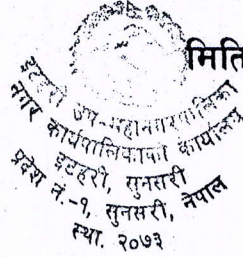 मिति
इटहरी उप-महानगरपालिका
नगर कार्यपालिकाको कार्यालय
इटहरी, सुनसरी
प्रदेश नं.-१, सुनसरी, नेपाल
स्था. २०७३